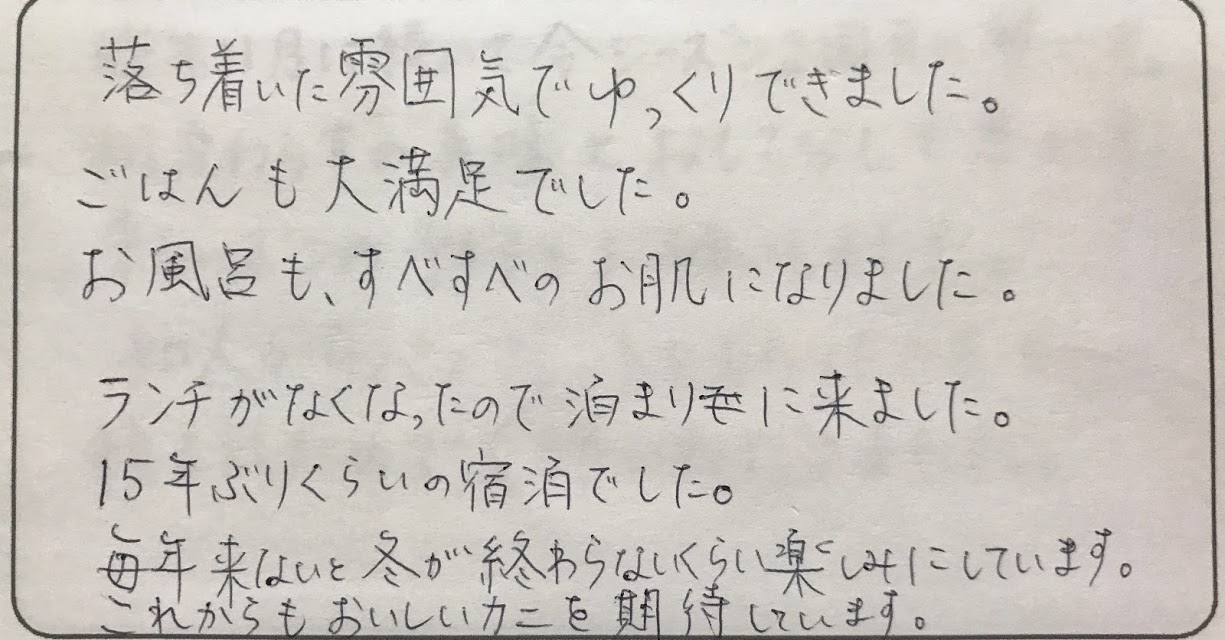 落ち着いた雰囲気でゆっくりできました。
ごはんも大満足でした。
お風呂も、すべすべのお肌になりました。
ランチがなくなったので泊まりに来ました。
15年ぶりくらいの宿泊でした。
毎年来ないと冬が終わらないくらい楽しみにしています。
これからもおいしいカニを期待しています。